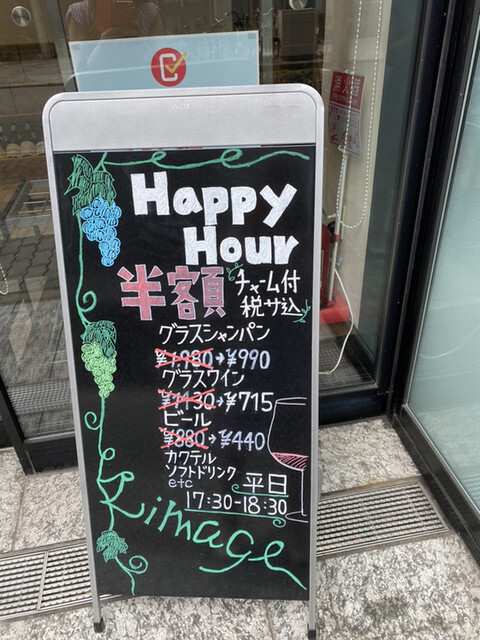 Happy
Hour
半額
チャーム付
税サ込
グラスシャンパン
¥1980→¥990
グラスワイン
¥1430→¥715
ビール
¥880→¥440
カクテル
ソフトドリンク
etc
平日
17:30-18:30
Rimage